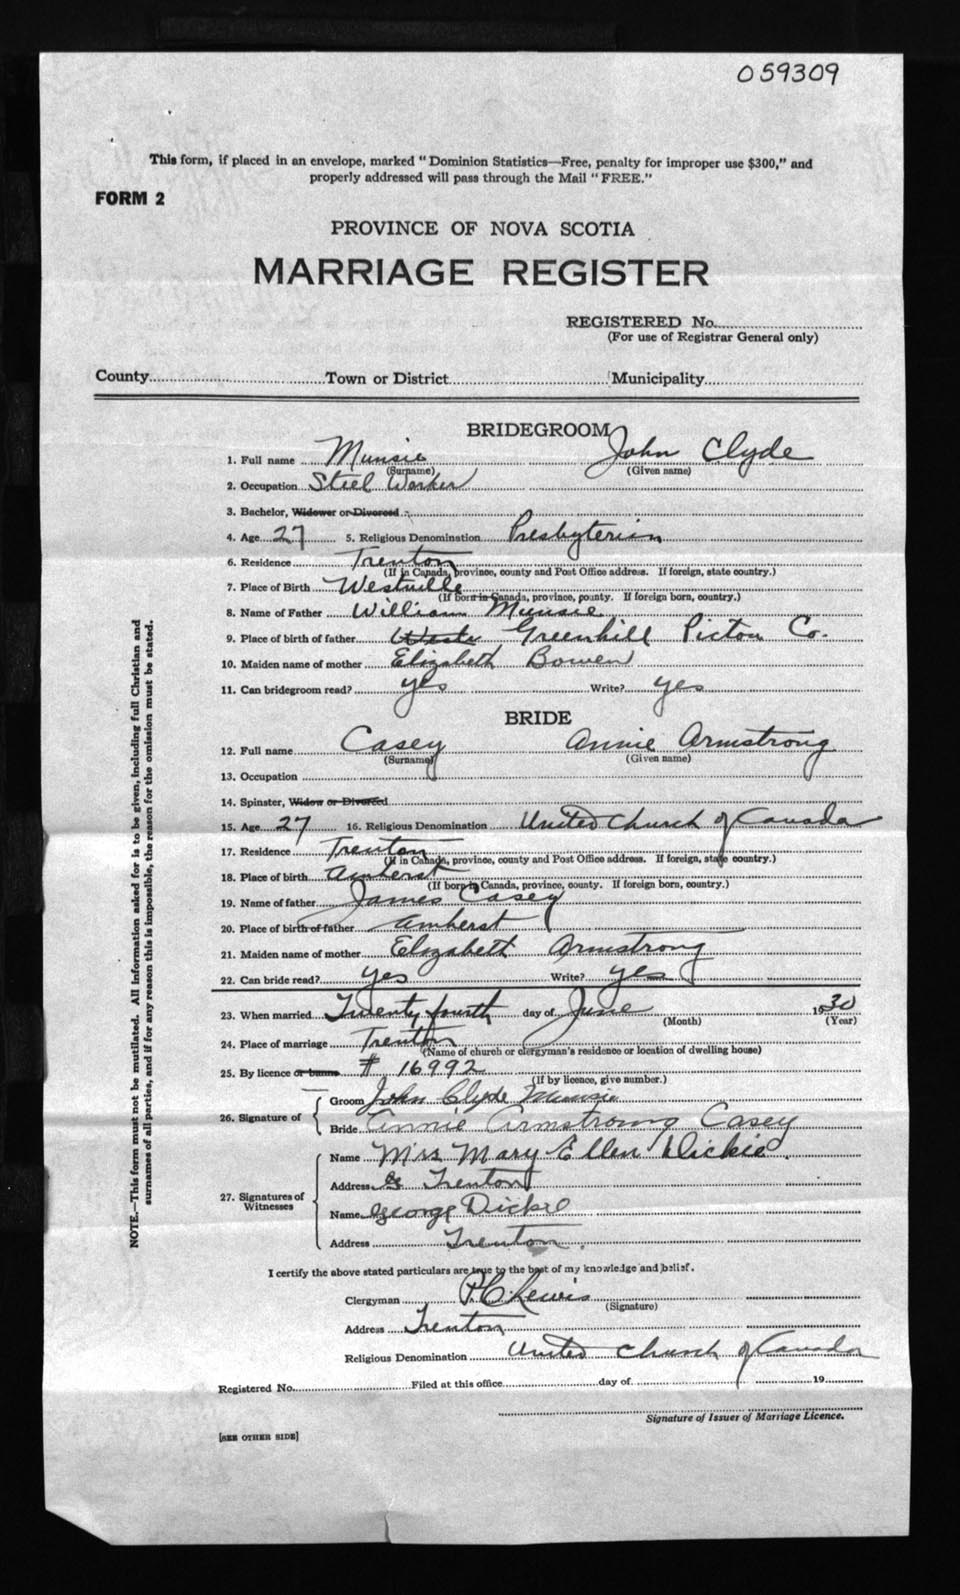 059309
This form, if placed in an envelope, marked "Dominion Statistics—Free, penalty for improper use $300," and
properly addressed will pass through the Mail "FREE."
FORM 2
PROVINCE OF NOVA SCOTIA
MARRIAGE REGISTER
REGISTERED No.
(For use of Registrar General only)
County Town or District Municipality
BRIDEGROOM
1. Full name Munsie John Clyde
(Surname) (Given name)
2. Occupation Steel Worker
3. Bachelor, Widower or Divorced
4. Age 27 5. Religious Denomination Presbyterian
6. Residence Trenton
(If in Canada, province, county and Post Office address. If foreign, state country.)
7. Place of Birth Westville
(If born in Canada, province, county. If foreign born, country.)
8. Name of Father William Munsie
9. Place of birth of father Greenhill Picton Co.
10. Maiden name of mother Elizabeth Bowen
11. Can bridegroom read? yes Write? yes
BRIDE
12. Full name Casey Annie Armstrong
(Surname) (Given name)
13. Occupation
14. Spinster, Widow or Divorced
15. Age 27 16. Religious Denomination United Church of Canada
17. Residence Trenton
(If in Canada, province, county and Post Office address. If foreign, state country.)
18. Place of birth Amherst
(If born in Canada, province, county. If foreign born, country.)
19. Name of father James Casey
20. Place of birth of father Amherst
21. Maiden name of mother Elizabeth Armstrong
22. Can bride read? yes Write? yes
23. When married Twenty fourth day of June 1930
(Month) (Year)
24. Place of marriage Trenton
(Name of church or clergyman's residence or location of dwelling house)
25. By licence or banns # 16992
(If by licence, give number.)
26. Signature of
Groom John Clyde Munsie
Bride Annie Armstrong Casey
27. Signatures of Witnesses
Name Mrs Mary Ellen Dickie.
Address Trenton
Name George Dickie
Address Trenton.
I certify the above stated particulars are true to the best of my knowledge and belief.
Clergyman P.C. Lewis
(Signature)
Address Trenton
Religious Denomination United Church of Canada
Registered No. Filed at this office day of 19
Signature of Issuer of Marriage Licence.
[SEE OTHER SIDE]
NOTE.—This form must not be mutilated. All information asked for is to be given, including full Christian and
surnames of all parties, and if for any reason this is impossible, the reason for the omission must be stated.